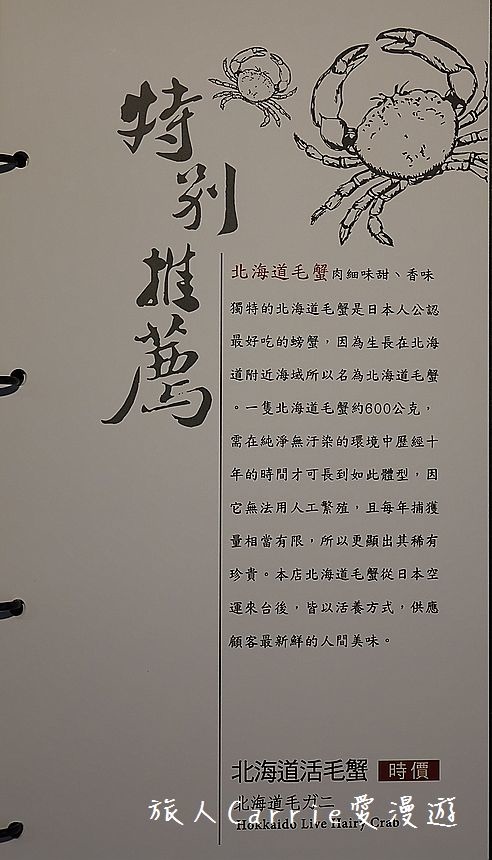 特別推薦
北海道毛蟹肉細味甜、香味
獨特的北海道毛蟹是日本人公認
最好吃的螃蟹，因為生長在北海
道附近海域所以名為北海道毛蟹
。一隻北海道毛蟹約600公克，
需在純淨無汙染的環境中歷經十
年的時間才可長到如此體型，因
它無法用人工繁殖，且每年捕獲
量相當有限，所以更顯出其稀有
珍貴。本店北海道毛蟹從日本空
運來台後，皆以活養方式，供應
顧客最新鮮的人間美味。
北海道活毛蟹 時價
北海道毛ガニ
Hokkaido Live Hairy Crab
旅人Carrie愛漫遊